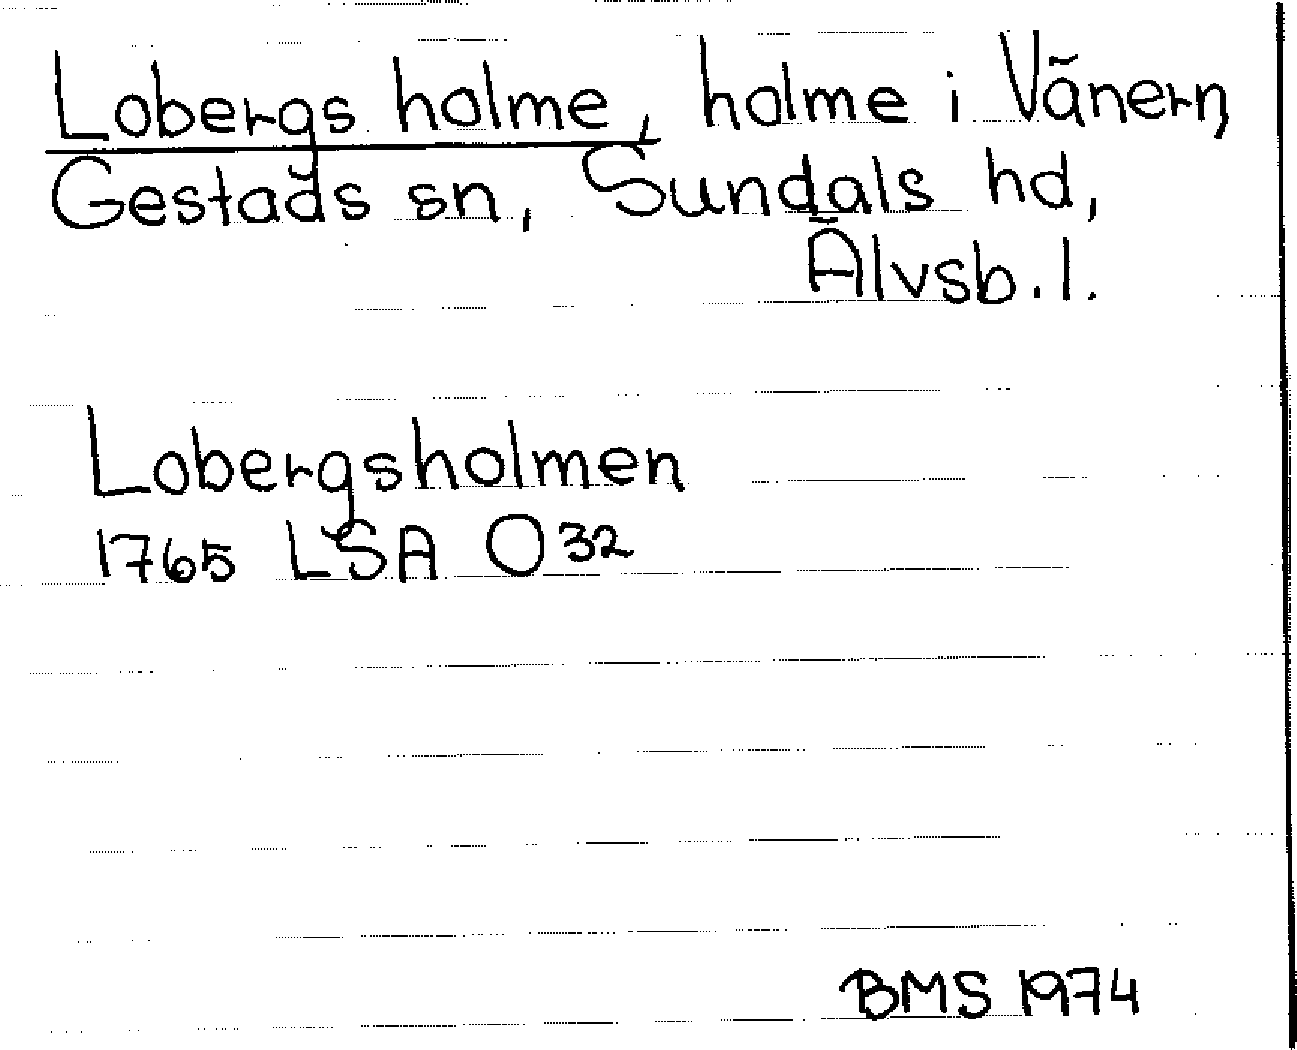 Lobergs holme, holme i Vänern,
Gestads sn, Sundals hd,
Älvsb. l.
Lobergsholmen
1765 LSA O 32
BMS 1974